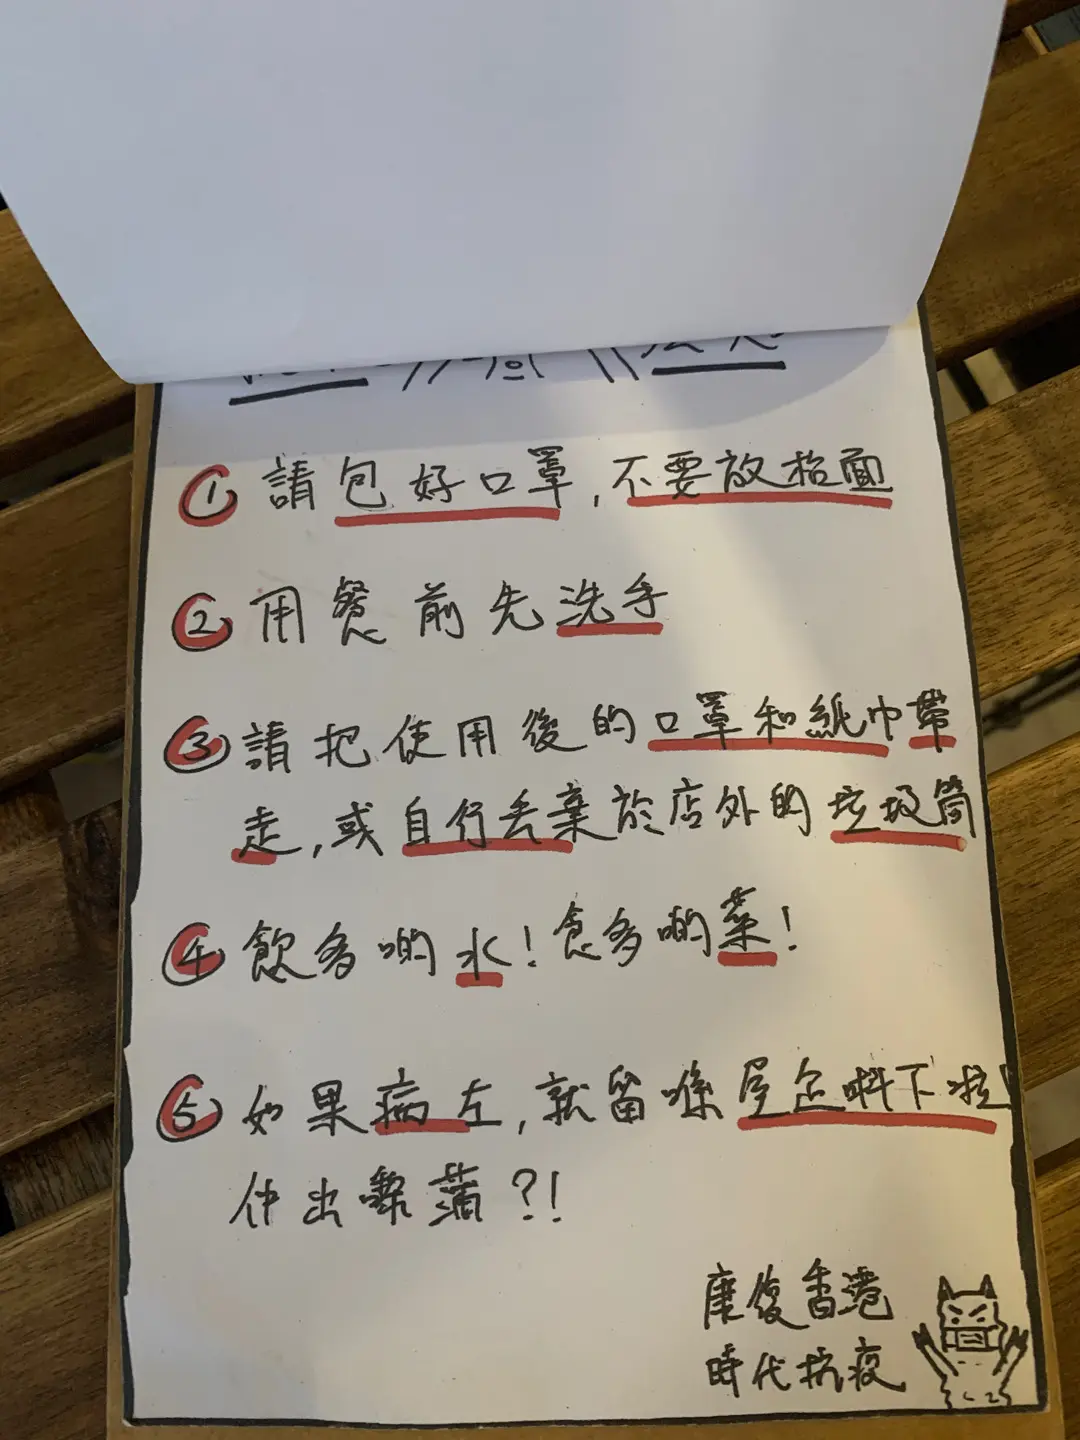 ① 請包好口罩,不要放枱面
② 用餐前先洗手
③ 請把使用後的口罩和紙巾帶
走,或自行丟棄於店外的垃圾筒
④ 飲多啲水!食多啲菜!
⑤ 如果病左,就留喺屋企唞下啦!
仲出嚟蒲?!
康復香港
時代抗疫